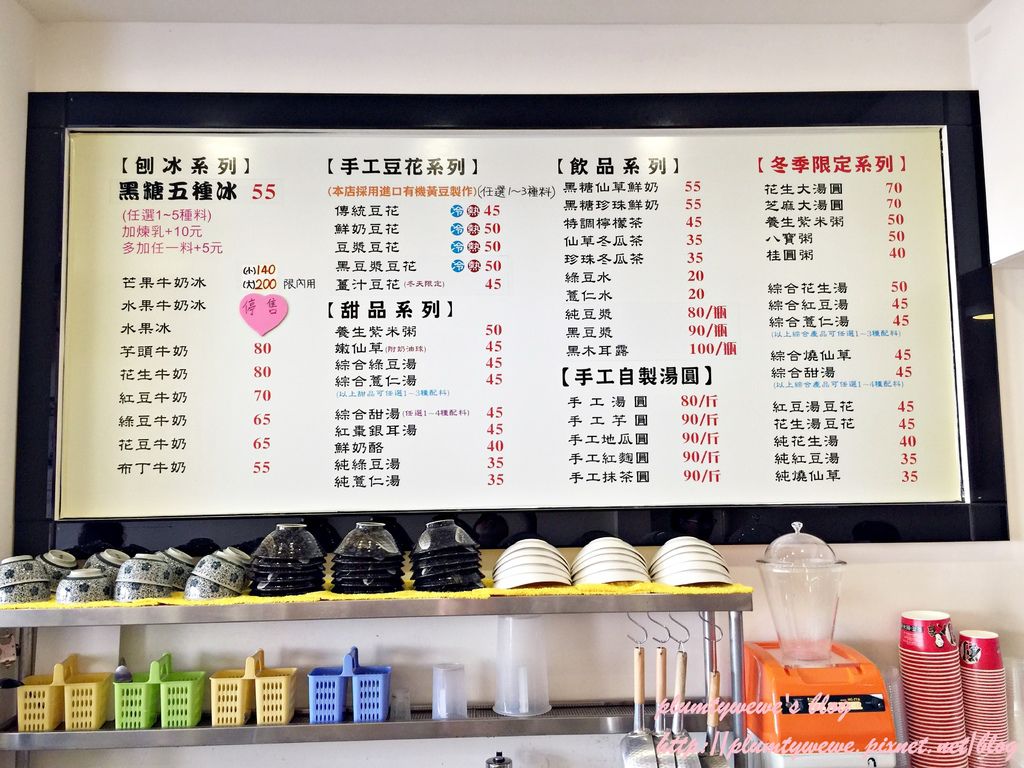 【刨冰系列】
黑糖五種冰 55
(任選1~5種料)
加煉乳+10元
多加任一料+5元
芒果牛奶冰 (小)140 (大)200 限內用
水果牛奶冰 停售
水果冰
芋頭牛奶 80
花生牛奶 80
紅豆牛奶 70
綠豆牛奶 65
花豆牛奶 65
布丁牛奶 55
【手工豆花系列】
(本店採用進口有機黃豆製作)(任選1~3種料)
傳統豆花 冷 熱 45
鮮奶豆花 冷 熱 50
豆漿豆花 冷 熱 50
黑豆漿豆花 冷 熱 50
薑汁豆花(冬天限定) 45
【甜品系列】
養生紫米粥 50
嫩仙草(附奶油球) 45
綜合綠豆湯 45
綜合薏仁湯 45
(以上甜品可任選1~3種配料)
綜合甜湯(任選1~4種配料) 45
紅棗銀耳湯 45
鮮奶酪 40
純綠豆湯 35
純薏仁湯 35
【飲品系列】
黑糖仙草鮮奶 55
黑糖珍珠鮮奶 55
特調檸檬茶 45
仙草冬瓜茶 35
珍珠冬瓜茶 35
綠豆水 20
薏仁水 20
純豆漿 80/瓶
黑豆漿 90/瓶
黑木耳露 100/瓶
【手工自製湯圓】
手工湯圓 80/斤
手工芋圓 90/斤
手工地瓜圓 90/斤
手工紅麴圓 90/斤
手工抹茶圓 90/斤
【冬季限定系列】
花生大湯圓 70
芝麻大湯圓 70
養生紫米粥 50
八寶粥 50
桂圓粥 40
綜合花生湯 50
綜合紅豆湯 45
綜合薏仁湯 45
(以上綜合產品可任選1~3種配料)
綜合燒仙草 45
綜合甜湯 45
(以上綜合產品可任選1~4種配料)
紅豆湯豆花 45
花生湯豆花 45
純花生湯 40
純紅豆湯 35
純燒仙草 35
plumtywewe's blog
http://plumtywewe.pixnet.net/blog